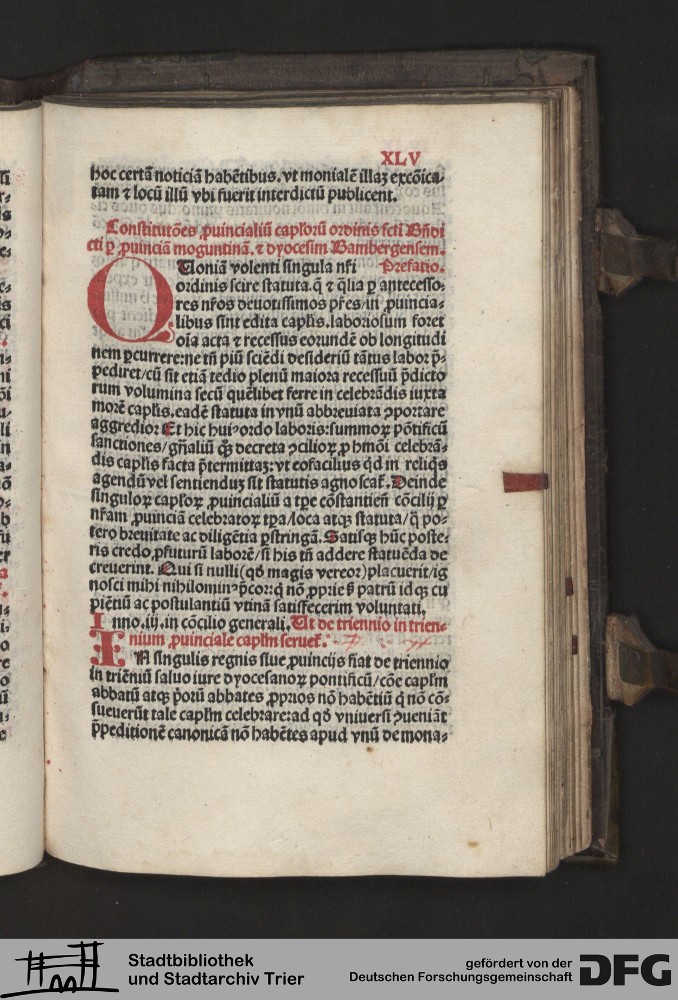 XLV
hoc certā noticiā habētibus. vt monialē illaꝫ excōica-
tam ⁊ locū illū vbi fuerit interdictū publicent.
Constitutōes ꝓuincialiū capl'orū ordinis scti Bn̄di
cti ꝑ ꝓuinciā moguntinā. ⁊ dyocesim Bambergensem.
QUoniā volenti singula nr̄i Prefatio.
ordinis scire statuta. q̄ ⁊ q̄lia ꝑ antecesso-
res nr̄os deuotissimos pr̄es/in ꝓuincia-
libus sint edita capl'is. laboriosum foret
oīa acta ⁊ recessus eorundē ob longitudi
nem ꝑcurrere: ne tn̄ piū sciēdi desideriū tātus labor p̄-
pediret/cū sit etiā tedio plenū maiora recessuū p̄dicto
rum volumina secū quēlibet ferre in celebrādis iuxta
morē capl'is. eadē statuta in vnū abbreuiata ꝯportare
aggredior Et hic huiꝰ ordo laboris: summoꝝ pōtificū
sanctiones/gn̄aliū qꝫ decreta ꝯcilioꝝ ꝓ hmōi celebrā-
dis capl'is facta p̄termittaꝫ: vt eo facilius qd in reliq̄s
agendū vel sentienduꝫ sit statutis agnoscat̄. Deinde
singuloꝝ capl'oꝝ ꝓuincialiū a tꝑe cōstantien̄ cōcilij ꝑ
nr̄am ꝓuinciā celebratoꝝ tꝑa/loca atqꝫ statuta/q̄ po-
tero breuitate ac diligētia ꝑstringā. Satisqꝫ hūc poste-
ris credo ꝓfuturū laborē/si his tn̄ addere statuēda de
creuerint. Qui si nulli (qd̄ magis vereor) placuerit/ig
nosci mihi nihilominꝰ p̄cor: q̄ nō ꝓprie sꝫ patrū idqꝫ cu
piētiū ac postulantiū vtinā satisfecerim voluntati,
Inno. iij. in cōcilio generali. Ut de triennio in trien-
nium ꝓuinciale capl'm seruet̄.
IN singulis regnis siue ꝓuincijs fiat de triennio
in triēniū saluo iure dyocesanoꝝ pontificū/cōe capl'm
abbatū atqꝫ p̄orū abbates ꝓprios nō habētiū q̄ nō cō-
sueuerūt tale capl'm celebrare: ad qd̄ vniuersi ꝯueniāt
p̄peditionē canonicā nō habētes apud vnū de mona-
Stadtbibliothek
und Stadtarchiv Trier
gefördert von der
Deutschen Forschungsgemeinschaft
DFG